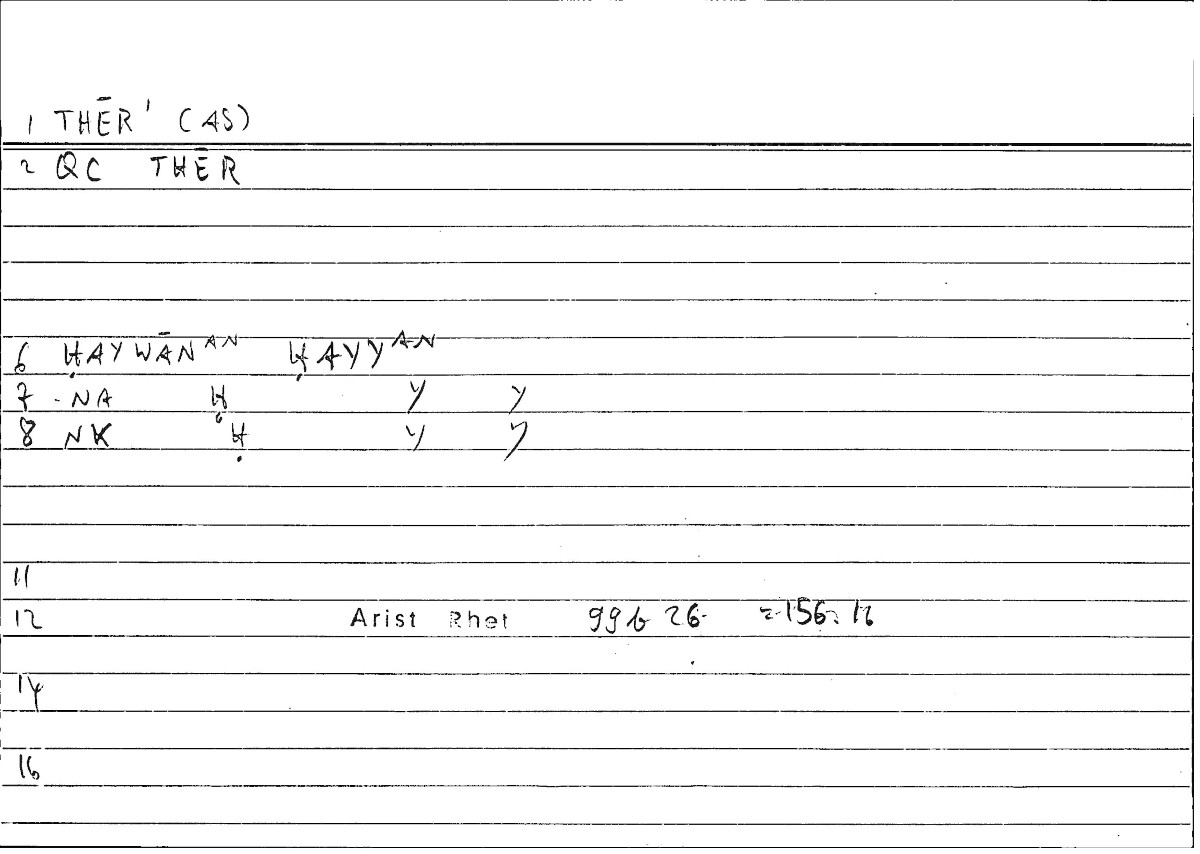 1 THĒR' (AS)
2 QC THĒR
6 ḤAYWĀN^AN ḤAYY^AN
7 -NA Ḥ Y Y
8 NK Ḥ Y Y
11
12 Arist Rhet 99b 26 =156. 12
14
16